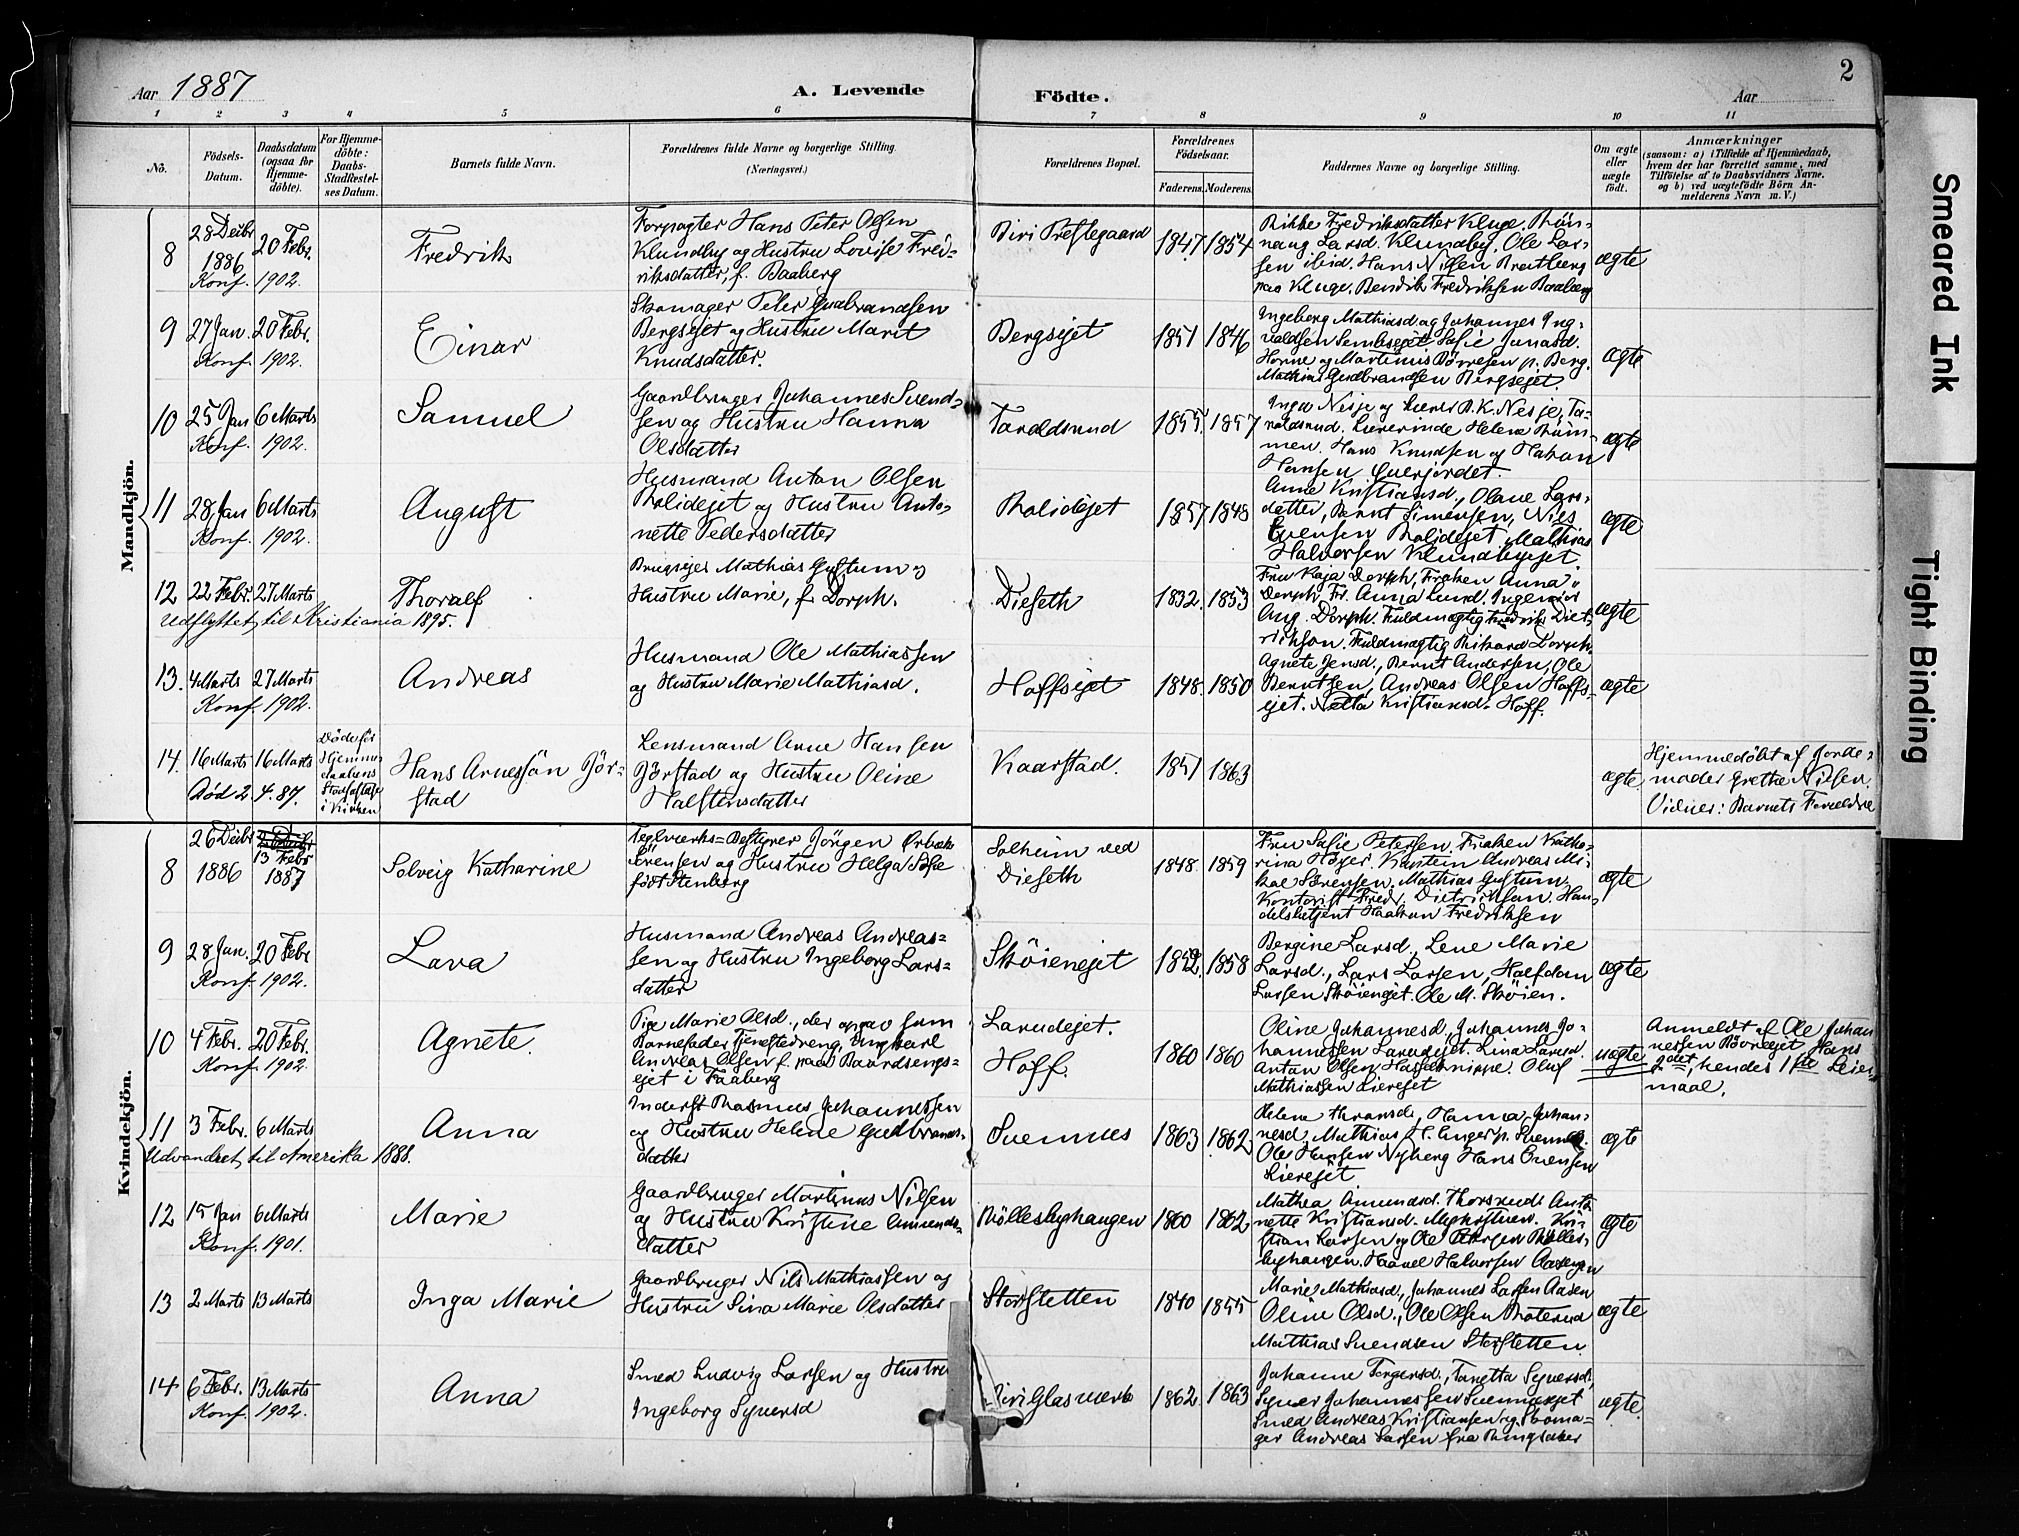 Aar 1887
A. Levende
Födte.
Aar
2
1 2 3 4 5 6 7 8 9 10 11
No.
Födsels-
Datum.
Daabsdatum
(ogsaa for
Hjemme-
döbte).
For Hjemme-
döbte:
Daabs-
Stadfestel-
ses Datum.
Barnets fulde Navn.
Forældrenes fulde Navne og borgerlige Stilling.
(Næringsvei.)
Forældrenes Bopæl.
Forældrenes
Födselsaar.
Faderens. Moderens.
Faddernes Navne og borgerlige Stilling.
Om ægte
eller
uægte
födt.
Anmærkninger
(saasom: a) i Tilfælde af Hjemmedaab,
hvem der har forrettet samme, med
Tilföielse af to Daabsvidners Navne.
og b) ved uægtefödte Börn An-
melderens Navn m. V.)
Mandkjön.
8
28 Decbr
1886
Konf. 1902.
20 Febr.
Fredrik
Forpagter Hans Peter Olsen
Klundby og Hustru Lovise Fred-
riksdatter, f. Baaberg
Biri Prestegaard
1847 1854
Rikke Fredriksdatter Kluge. Rön-
naug Larsd. Klundby. Ole Lar-
sen ibid. Hans Nilsen Bratberg
paa Kluge. Bendrik Fredriksen Baaberg
ægte
9
27 Jan. 20 Febr.
Konf. 1902.
Einar
Skomager Peter Gudbrandsen
Bergsejet og Hustru Marit
Knudsdatter.
Bergsejet
1851 1846
Ingeborg Mathiasd. og Johannes Ing-
valdsen Sembsejet Sofie Jonasd.
Horne og Martinus Börresen p. Berg.
Mathias Gudbrandsen Bergsejet.
ægte
10
25 Jan 6 Marts
Konf. 1902.
Samuel
Gaardbruger Johannes Svend-
sen og Hustru Hanna
Olsdatter
Taraldsrud
1855 1857
Inga Nesje og Lærer B. K. Nesje, Ta-
raldsrud. Lærerinde Helene Röm-
men. Hans Knudsen og Hakon
Hansen Qverjordet
ægte
11
28 Jan 6 Marts
Konf. 1902.
August
Husmand Anton Olsen
Bolidejet og Hustru Anto-
nette Pedersdatter
Bolidejet
1857 1848
Anne Kristiansd., Olave Lars-
datter, Bernt Simensen, Nils
Evensen Bolidejet Mathias
Halvorsen Klundbyejet.
ægte
12
22 Febr. 27 Marts
Udflyttet til Kristiania 1895.
Thoralf
Brugsejer Mathias Gustum og
Hustru Marie, f. Dorph.
Dieseth
1832 1853
Fru Kaja Dorph, Frøken Anna
Dorph. Fr. Anna Lund. Ingeniör
Aug. Dorph. Fuldmægtig Fredrik Diet-
richson. Fuldmægtig Rikard Dorph.
ægte
13.
4 Marts 27 Marts
Konf. 1902.
Andreas
Husmand Ole Mathiassen
og Hustru Marie Mathiasd.
Hoffsejet
1848. 1850
Agnete Jensd., Bernt Andersen, Ole
Berntsen, Andreas Olsen Hoffs-
ejet. Netta Kristiansd. Hoff.
ægte
14.
16 Marts 16 Marts
Död 2/4. 87.
Döde för
Hjemme-
daabens
Stadfæstelse
i Kirken
Hans Arnessön Jör-
stad
Lensmand Arne Hansen
Jörstad og Hustru Oline
Halstensdatter
Kaarstad.
1851 1863
ægte
Hjemmedöbt af Jorde-
moder Grethe Nilsen.
Vidner: Barnets Forældre
Kvindekjön.
8
26 Decbr
1886
13 Febr
1887
Solveig Katharine
Teglværks-Bestyrer Jörgen Örbæk
Sörensen og Hustru Helga Sofie
födt Stenberg
Solheim ved
Dieseth
1848 1859
Fru Sofie Petersen, Frøken Katha-
rina Höyer. Kaptein Andreas Mi-
kal Sörensen. Mathias Gustum,
Kontorist Fredr. Dietrichson. Han-
delsbetjent Haakon Fredriksen
ægte
9
28 Jan. 20 Febr
Konf. 1902.
Lava
Husmand Andreas Andreas-
sen og Hustru Ingeborg Lars-
datter
Sköienejet
1852 1858
Bergine Larsd., Lene Marie
Larsd., Lars Larsen, Halfdan
Larsen Sköienejet. Ole M. Sköien.
ægte
10
4 Febr. 20 Febr.
Konf. 1902.
Agnete.
Pige Marie Olsd., der opgav som
Barnefader Tjenestedreng, Ungkarl
Andreas Olsen f. paa Baardsengs-
ejet i Faaberg
Larudejet.
Hoff.
1860 1860
Oline Johannesd., Johannes Jo-
hannessen Larudejet. Lina Larsd.
Anton Olsen Hasselknippe. Oluf
Mathiassen Liereset
uægte
Anmeldt af Ole Johan-
nessen Bövreejet Hans
2det, hendes 1ste Leier-
maal.
11
3 Febr. 6 Marts
Udvandret til Amerika 1888.
Anna
Inderst Rasmus Johannessen
og Hustru Helene Gudbrands-
datter
Svennes
1863 1862
Helene Iversd., Hanna Johan-
nesd. Mathias H. Enger p. Svennes.
Ole Hansen Nyberg Hans Evensen
Liereset
ægte
12
15 Jan 6 Marts
Konf. 1901.
Marie
Gaardbruger Martinus Nilsen
og Hustru Kristine Amunds-
datter
Böllesbyhaugen
1860 1862
Mathea Amundsd. Thorsrud. Anto-
nette Kristiansd. Myhrstuen. Kri-
stian Larsen og Ole Larsen Bölles-
byhaugen. Haavel Halvorsen Aasengen
ægte
13
2 Marts 13 Marts
Inga Marie
Gaardbruger Nils Mathiassen og
Hustru Sina Marie Olsdatter
Storstetten
1840 1855
Marie Mathiasd., Johannes Larsen Aasen
Oline Olsd., Ole Olsen Roterud
Mathias Svendsen Storstetten.
ægte
14
6 Febr. 13 Marts
Konf. 1902.
Anna
Smed Ludvig Larsen og Hustru
Ingeborg Syversd
Biri Glasværk
1862. 1863
Johanne Torgersd., Tonetta Syversd.,
Syver Johannessen Svennesejet
Smed Andreas Kristiansen og Skoma-
ger Andreas Larsen fra Ringsaker
ægte.
Smeared Ink
Tight Binding